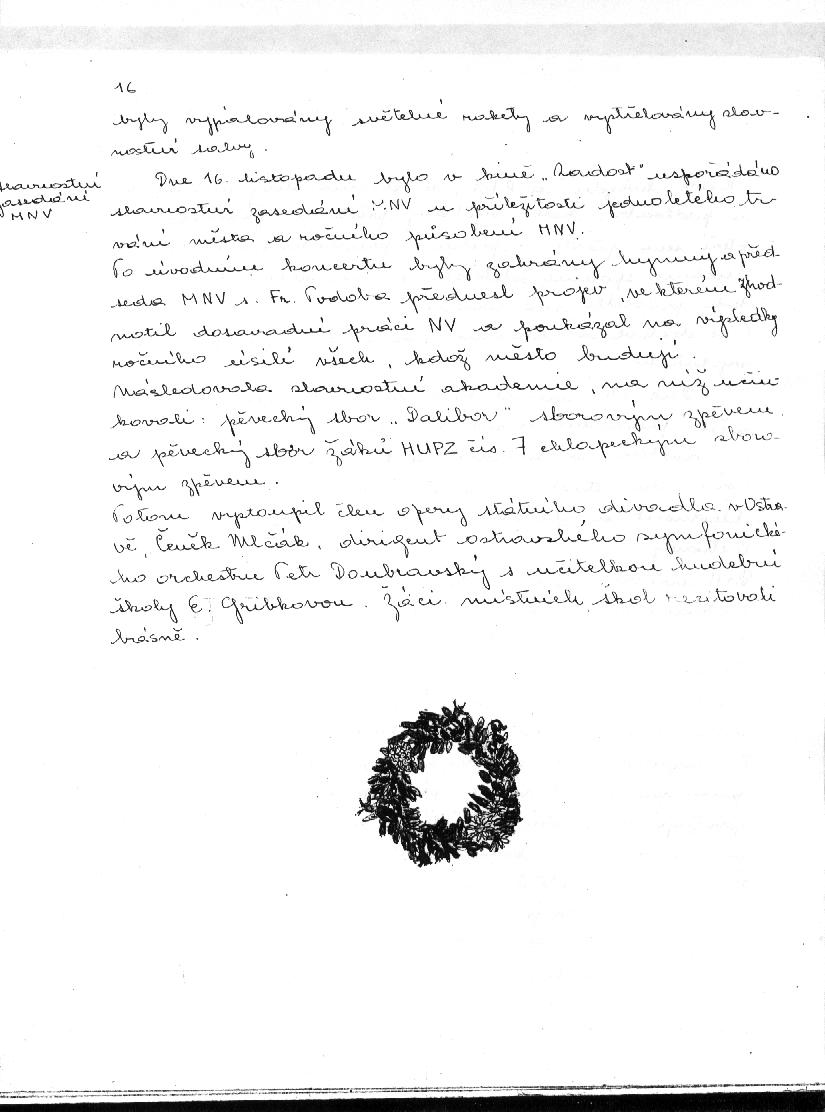 16
byly vypalovány světelné rakety a vystřelovány slav-
nostní salvy.
slavnostní
zasedání
MNV
Dne 16. listopadu bylo v kině „Radost" uspořádáno
slavnostní zasedání MNV u příležitosti jednoletého tr-
vání města a ročního působení MNV.
Po úvodním koncertu byly zahrány hymny a před-
seda MNV s. Fr. Podoba přednesl projev, ve kterém zhod-
notil dosavadní práci NV a poukázal na výsledky
ročního úsilí všech, kdož město budují.
Následovala slavnostní akademie, na níž účin-
kovali: pěvecký sbor „Dalibor" sborovým zpěvem
a pěvecký sbor žáků HUPZ čís. 7 chlapeckým sboro-
vým zpěvem.
Potom vystoupil člen opery státního divadla v Ostra-
vě, Čeněk Mlčák, dirigent ostravského symfonické-
ho orchestru Petr Doubravský s učitelkou hudební
školy E. Gribkovou. Žáci místních škol recitovali
básně.